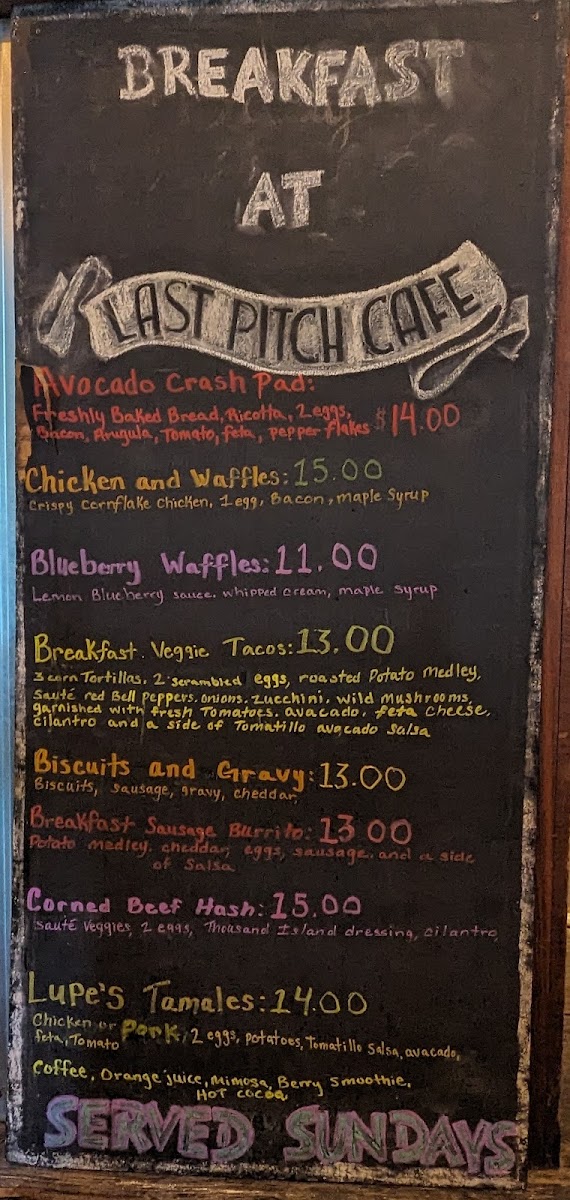 BREAKFAST
AT
LAST PITCH CAFE
Avocado Crash Pad:
Freshly Baked Bread, Ricotta, 2 eggs, $14.00
Bacon, Arugula, Tomato, feta, pepper flakes
Chicken and Waffles: 15.00
Crispy Cornflake Chicken, 1 egg, Bacon, maple Syrup
Blueberry Waffles: 11.00
Lemon Blueberry sauce. whipped cream, maple syrup
Breakfast. Veggie Tacos: 13.00
3 corn Tortillas. 2 scrambled eggs, roasted Potato Medley,
Sauté red Bell Peppers. onions. zucchini, wild mushrooms
garnished with fresh Tomatoes. avacado. feta cheese,
cilantro and a side of Tomatillo avocado salsa
Biscuits and Gravy: 13.00
Biscuits, sausage, gravy, cheddar,
Breakfast Sausage Burrito: 13 00
Potato medley. cheddar, eggs, sausage. and a side
of Salsa
Corned Beef Hash: 15.00
sauté veggies, 2 eggs, Thousand Island dressing, cilantro,
Lupe's Tamales: 14.00
Chicken or Pork, 2 eggs, potatoes, Tomatillo Salsa, avacado,
feta, Tomato
Coffee, Orange juice, Mimosa, Berry Smoothie,
HOT COCOA
SERVED SUNDAYS